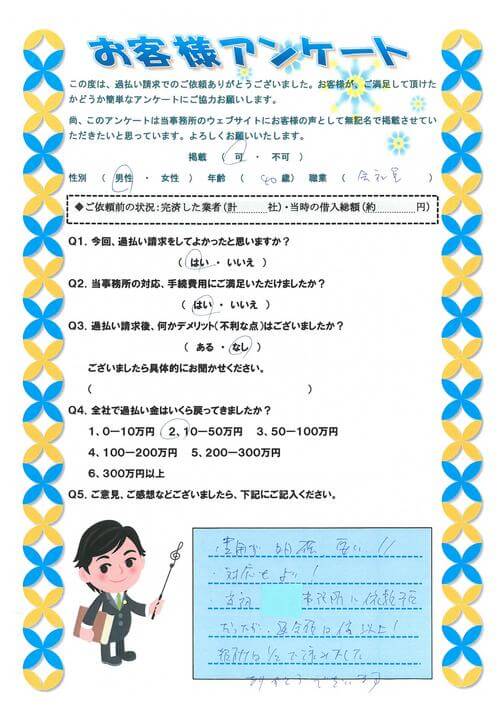 お客様アンケート
この度は、過払い請求でのご依頼ありがとうございました。お客様が、ご満足して頂けた
かどうか簡単なアンケートにご協力お願いします。
尚、このアンケートは当事務所のウェブサイトにお客様の声として無記名で掲載させてい
ただきたいと思っています。よろしくお願いいたします。
掲載 ( 可 ・ 不可 )
性別 ( 男性 ・ 女性 ) 年齢 ( 40 歳) 職業 ( 会社員 )
◆ご依頼前の状況:完済した業者(計 社)・当時の借入総額(約 円)
Q1. 今回、過払い請求をしてよかったと思いますか?
( はい ・ いいえ )
Q2. 当事務所の対応、手続費用にご満足いただけましたか?
( はい ・ いいえ )
Q3. 過払い請求後、何かデメリット(不利な点)はございましたか?
( ある ・ なし )
ございましたら具体的にお聞かせください。
( )
Q4. 全社で過払い金はいくら戻ってきましたか?
1、0ー10万円 2、10ー50万円 3、50ー100万円
4、100ー200万円 5、200ー300万円
6、300万円以上
Q5. ご意見、ご感想などございましたら、下記にご記入ください。
・費用が 明確 安い!!
・対応もよい!
・当初 事務所に依頼予定
だったが、返金額は倍以上!
期間は1/2で済みました
ありがとうございます